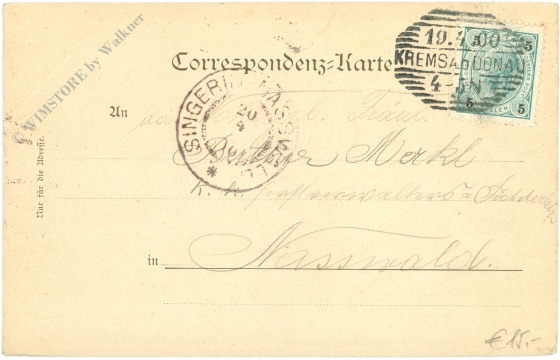 © WIMSTORE by Walkner
Correspondenz-Karte
19.4.00
KREMS A/D DONAU
4-5N
5 5
5 5
SINGERIN NASSWALD
20
4
00
An
Fräul.
Merkl
k. k. Postverwalters-
in Nasswald.
Nur für die Adresse.
€15.-